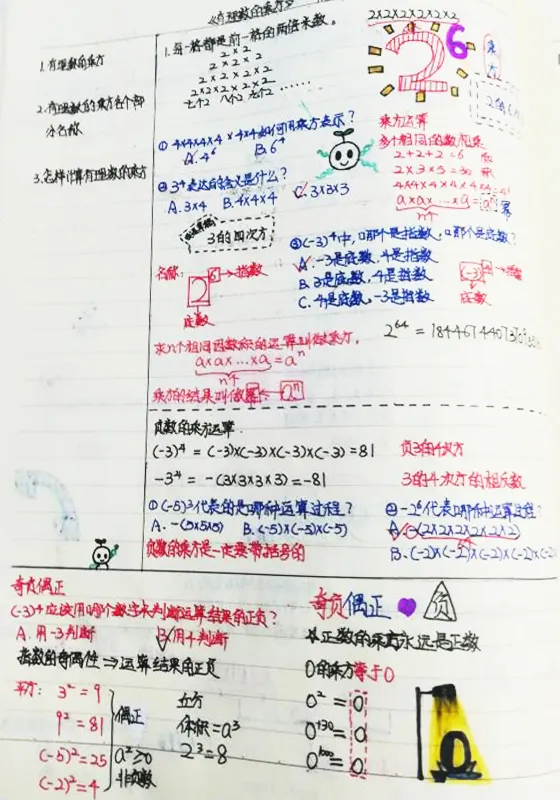 《有理数的乘方》
1.有理数的乘方
2.有理数的乘方各个部
分名称
3.怎样计算有理数的乘方
1.每一格都是前一格的两倍米数。
2×2
2×2×2
2×2×2×2
2×2×2×2×2 ……
2×2×2×2×2×2
2⁶
乘方
① 4×4×4×4×4×4如何用乘方表示？
A. 4⁶ B. 6⁴
② 3⁴表达的含义是什么？
A. 3×4 B. 4×4×4 C. 3×3×3
3的四次方
乘方运算
多个相同的数相乘
2+2+2=6
2×3×5=30
4×4×4×4×4×4=4⁶
a×a×…×a=aⁿ 幂
n个
③(-3)⁴中，哪个是指数，哪个是底数？
A. -3是底数，4是指数
B. 3是底数，4是指数
C. 4是底数，-3是指数
名称：
→指数
底数
(-3)⁴→指数
底数
求n个相同因数积的运算叫做乘方，
a×a×…×a=aⁿ
n个
乘方的结果叫做幂 aⁿ
负数的乘方运算
(-3)⁴=(-3)×(-3)×(-3)×(-3)=81 负3的4次方
-3⁴=-(3×3×3×3)=-81 3的4次方的相反数
①(-5)³代表的是哪种运算过程？
A. -(5×5×5) B. (-5)×(-5)×(-5)
负数的乘方是一定要带括号的
②-2⁶代表哪种运算过程？
A. -(2×2×2×2×2×2)
B. (-2)×(-2)×(-2)×(-2)×(-2)
奇负偶正
(-3)⁴应该用哪个数字来判断运算结果的正负？
A. 用-3判断 B. 用4判断
指数的奇偶性⇒运算结果的正负
平方：3²=9
9²=81
(-5)²=25
(-2)²=4
偶正
a²≥0
非负数
立方
体积=a³
2³=8
奇负偶正 负
正数的乘方永远是正数
0的乘方等于0
0²=0
0¹³⁰=0
0¹⁰⁰=0
0